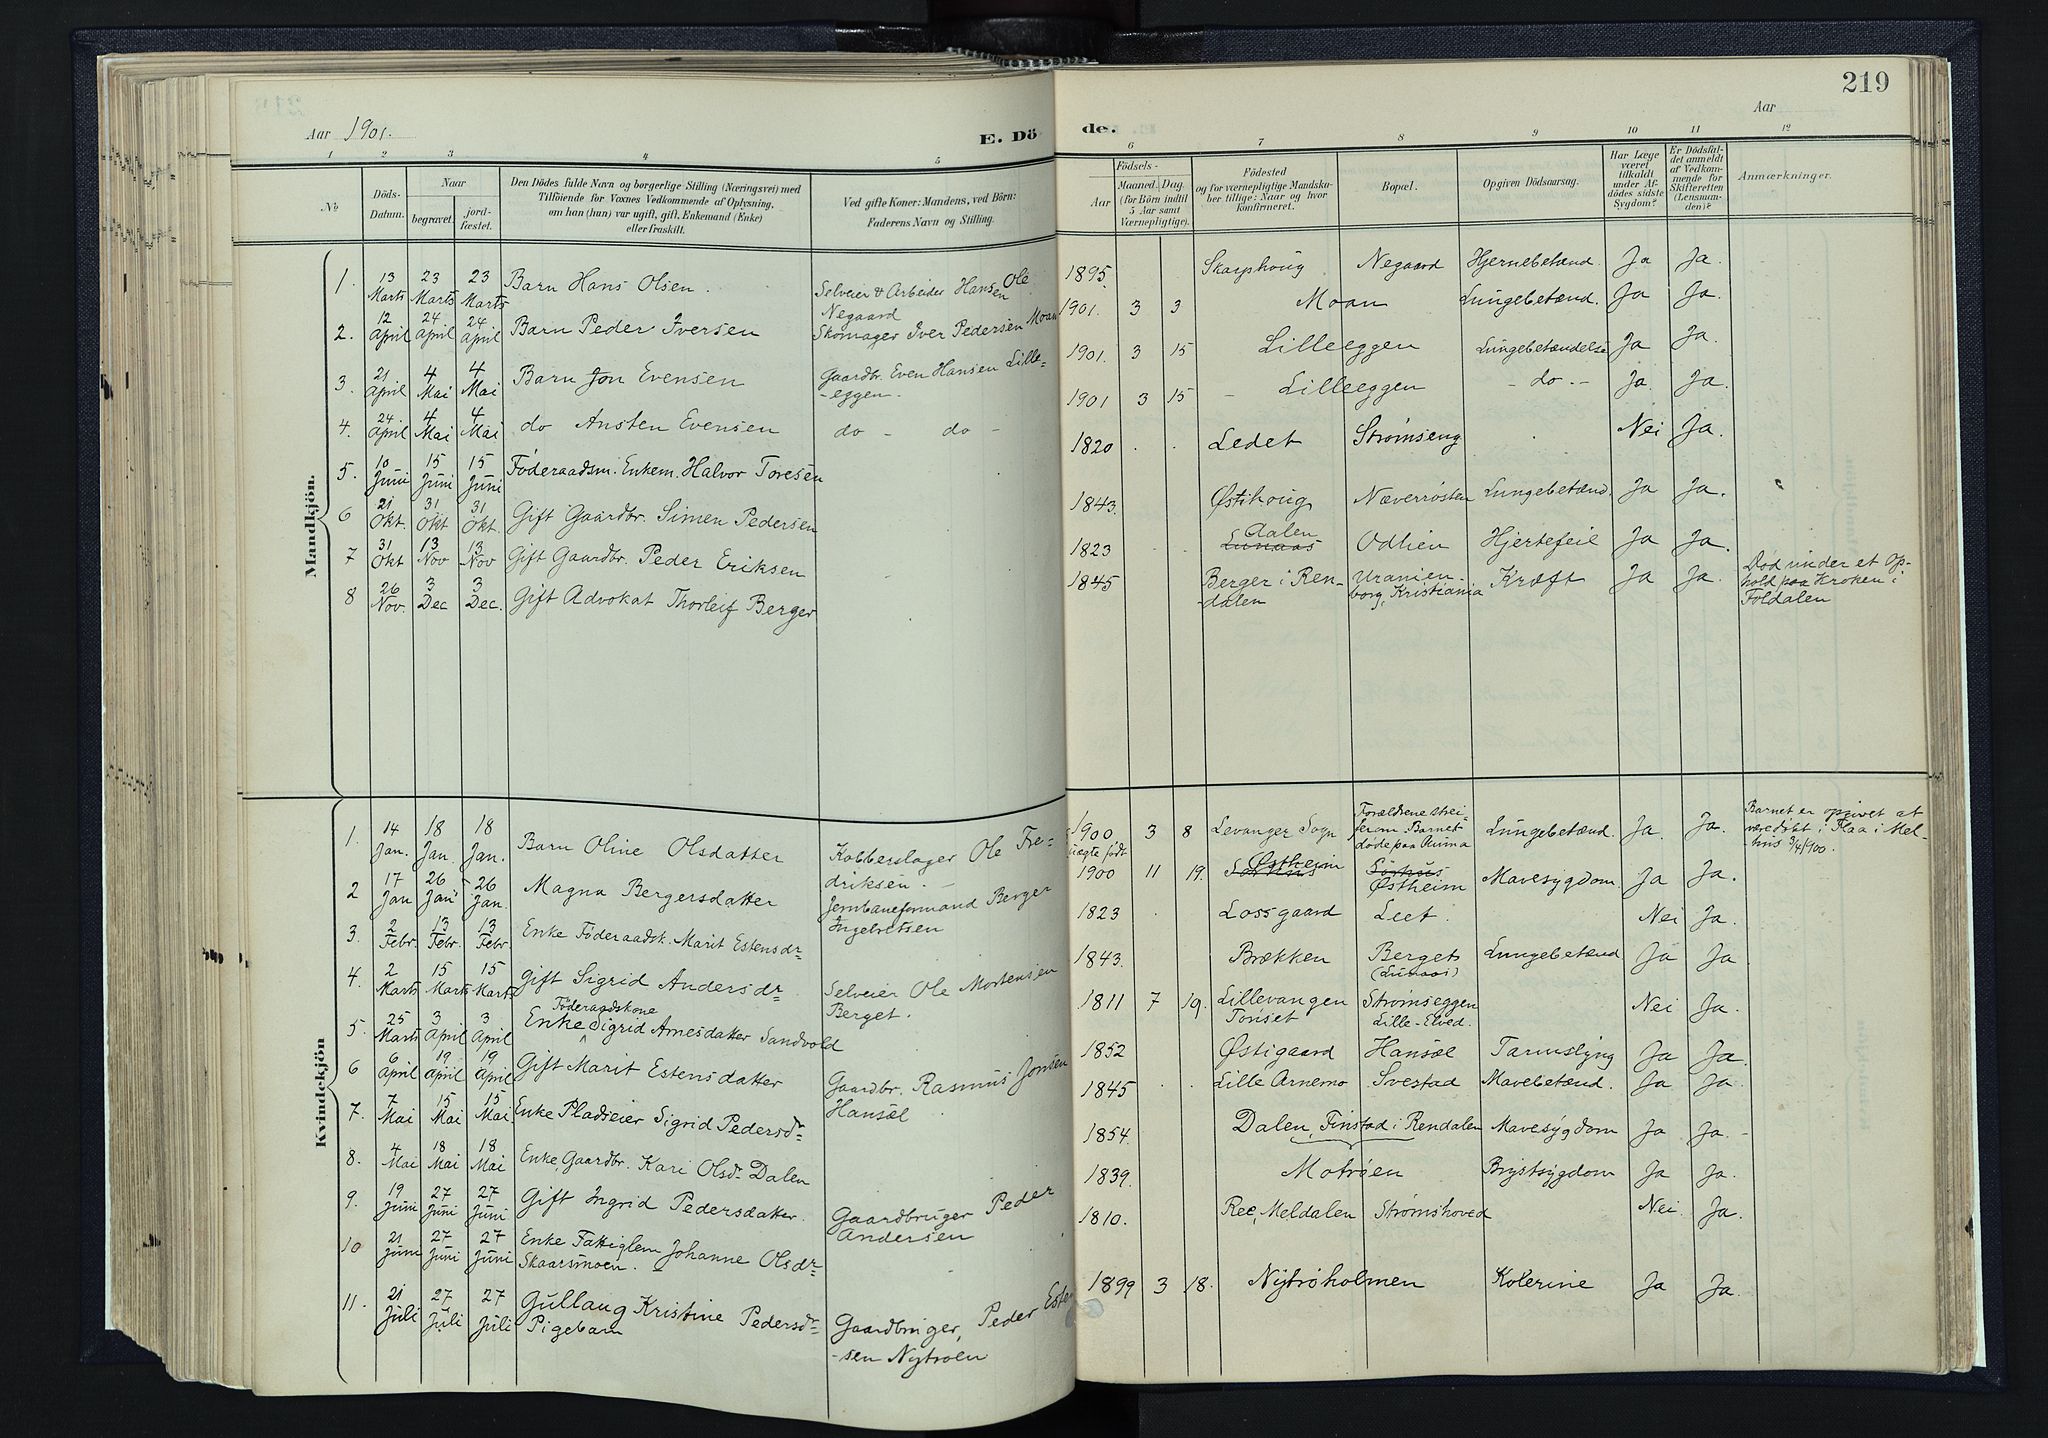 219
Aar 1901.
E. Dö
de.
Aar
1 2 3 4 5
6 7 8 9 10 11 12
№
Döds-
Datum.
Naar
begravet.
jord-
fæstet.
Den Dödes fulde Navn og borgerlige Stilling (Næringsvei) med
Tilföiende for Voxnes Vedkommende af Oplysning,
om han (hun) var ugift, gift, Enkemand (Enke)
eller fraskilt.
Ved gifte Koner: Mandens, ved Börn:
Faderens Navn og Stilling.
Födsels-
Aar
Maaned. Dag.
(for Börn indtil
5 Aar samt
Værnepligtige).
Födested
og for værnepligtige Mandska-
ber tillige: Naar og hvor
konfirmeret.
Bopæl.
Opgiven Dödsaarsag.
Har Læge
været
tilkaldt
under Af-
dödes sidste
Sygdom?
Er Dödsfal-
det anmeldt
af Vedkom-
mende for
Skifteretten
(Lensman-
den)?
Anmærkninger.
Mandkjön.
1. 13 Marts 23 Marts 23 Marts Barn Hans Olsen. Selveier & Arbeider Hansen Ole Negaard 1895. Skarphoug Negaard Hjernebetænd. Ja Ja.
2. 12 April 24 April 24 April Barn Peder Iversen Skomager Iver Pedersen Moan 1901. 3 3 Moan Lungebetænd. Ja Ja.
3. 21 April 4 Mai 4 Mai Barn Jon Evensen Gaardbr. Even Hansen Lille-
-eggen. 1901 3 15 Lilleeggen Lungebetændelse Ja Ja.
4. 24 April 4 Mai 4 Mai do Ansten Evensen do - do - 1901 3 15 - Lilleeggen - do - Ja. Ja.
5. 10 Juni 15 Juni 15 Juni Föderaadsm. Enkem. Halvor Toresen 1820 Ledet Strømseng Nei Ja.
6 21 Okt. 31 Okt 31 Okt. Gift Gaardbr. Simen Pedersen 1843. Østihoug Næverrøsten Lungebetænd. Ja Ja.
7 31 Okt 13 Nov 13 Nov Gift Gaardbr. Peder Eriksen 1823 Lunaas Dalen Odlien Hjertefeil Ja Ja.
8 26 Nov. 3 Dec 3 Dec. Gift Advokat Thorleif Berger 1845 Berger i Ren-
dalen Uranien-
borg, Kristiania Kræft Ja Ja. Død under et Op-
hold paa Kroken i
Foldalen
Kvindekjön
1. 14 Jan. 18 Jan. 18 Jan. Barn Oline Olsdatter Kobberslager Ole Fre-
driksen. 1900 3 8 Levanger Sogn Forældrene strei-
fer om Barnet
døde paa Auma Lungebetænd. Ja. Ja. Barnet er opgivet at
være døbt i Flaa i Mel-
hus 3/4 1900.
2 17 Jan 26 Jan 26 Jan. Magna Bergersdatter Jernbaneformand Berger
Ingebretsen uægte født 1900 11 19. Østheim Østheim Mavesygdom. Ja Ja.
3. 2 Febr 13 Febr. 13 Febr Enke Föderaadsk. Marit Estensdr 1823 Lossgaard Leet. Nei Ja.
4. 2 Marts 15 Marts 15 Marts Gift Sigrid Andersdr. Selveier Ole Mortensen
Berget. 1843. Brækken Bergets
(Lunaas) Lungebetænd Ja Ja
5. 25 Marts 3 April 3 April Föderaadskone
Enke Sigrid Arnesdatter Sandvold 1811 7 19. Lillevangen
Tønset Strømseggen
Lille-Elved. Nei Ja.
6 6 April 19 April 19 April Gift Marit Estensdatter Gaardbr. Rasmus Jonsen
Hansæl 1852 Østigaard Hansæl Tarmslyng Ja Ja.
7. 7 Mai 15 Mai 15 Mai Enke Pladseier Sigrid Pedersdr 1845 Lille Arnemo Svestad Mavebetænd. Ja Ja.
8. 4 Mai 18 Mai 18 Mai Enke, Gaardbr. Kari Olsdr Dalen 1854. Dalen, Finstad i Rendalen Mavesygdom Ja Ja.
9. 19 Juni 27 Juni 27 Juni Gift Ingrid Pedersdatter. Gaardbruger Peder
Andersen 1839. Motrøen Brystsygdom Ja Ja.
10 21 Juni 27 Juni 27 Juni Enke Fattiglem Johanne Olsdr
Skaarsmoen. 1810. Ree, Meldalen Strømshoved Nei. Ja.
11. 21 Juli 27 Juli 27 Juli Gullaug Kristine Pedersdr
Pigebarn Gaardbruger, Peder Esten
-sen Nytroen 1899 3 18. Nytrøholmen Kolerine Ja Ja.